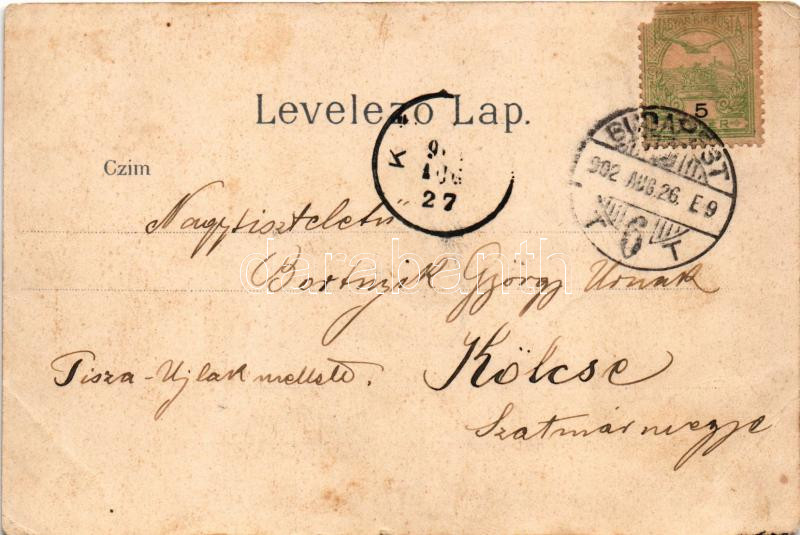 MAGYAR KIR. POSTA
5
Levelező Lap.
BUDAPEST
902 AUG. 26. E9
6
T T
K
9
AUG
27
Czim
Nagytiszteletü
Bortnyik György Urnak
darabanth
Tisza-Ujlak mellett.
Kölcse
Szatmármegye